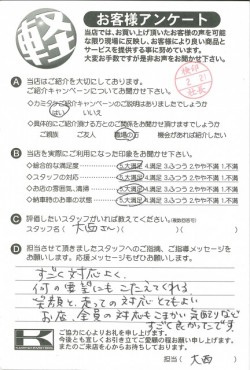 軽
お客様アンケート
当店では、お買い上げ頂いたお客様の声を可能
な限り現場に反映し、お客様により良い商品と
サービスを提供する事に努めています。
大変お手数ですが是非お声をお聞かせ下さい。
A 当店はご紹介を大切にしております。
ご紹介キャンペーンについてお聞かせ下さい。
◇カミタニご紹介キャンペーンのご説明はありましたでしょうか
はい いいえ
◇具体的にご紹介頂ける方とのご関係をお聞かせ頂けますでしょうか
ご親族 ご友人 職場の方 機会があれば紹介したい
B 当店を実際にご利用になった印象をお聞かせ下さい。
◇総合的な満足度 5.大満足 4.満足 3.ふつう 2.やや不満 1.不満
◇スタッフの対応 5.大満足 4.満足 3.ふつう 2.やや不満 1.不満
◇お店の雰囲気、清掃 5.大満足 4.満足 3.ふつう 2.やや不満 1.不満
◇納車時のお車の状態 5.大満足 4.満足 3.ふつう 2.やや不満 1.不満
C 評価したいスタッフがいれば教えてください。(複数回答可)
スタッフ名( 大西さん )( )
D 担当させて頂きましたスタッフへのご指摘、ご指導メッセージを
お願いします。応援メッセージもぜひお願いします。
すごく対応よく、
何の要望にもこたえてくれる
笑顔と、走っての対応とてもよい
お店、全員の対応もこまかい気配りなど
すごく良かったです
K
ご協力に心よりお礼を申し上げます。
今後とも宜しくお引き立てご愛顧の程お願い申し上げます。
またのご来店を心からお待ちしております。
担当( 大西 )